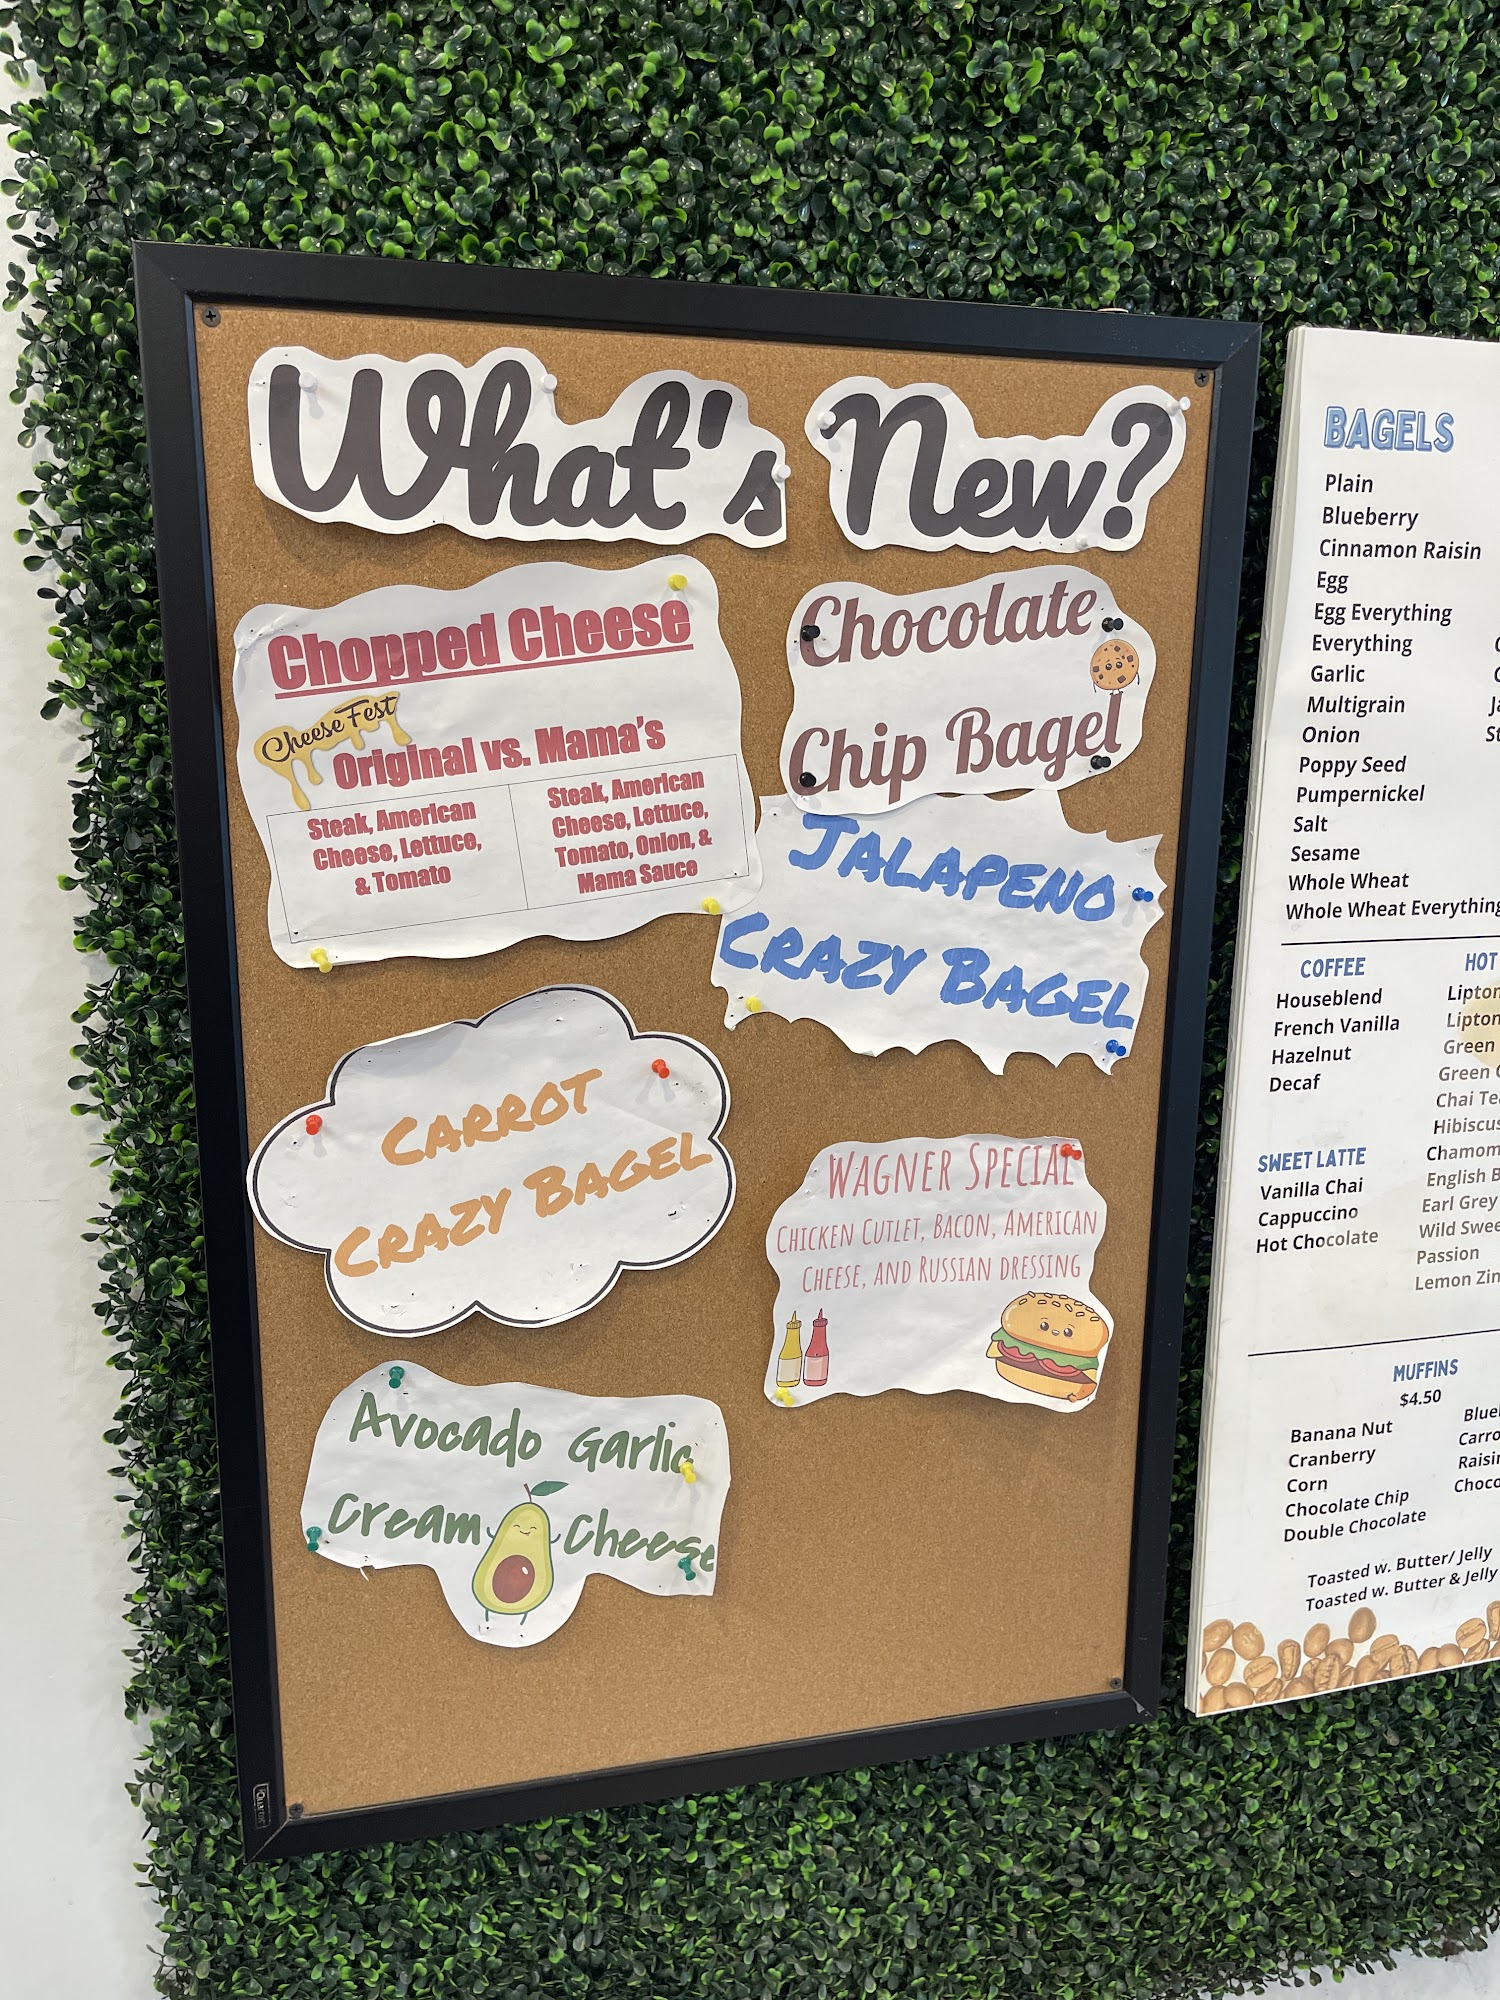 What's New?
Chopped Cheese
Cheese Fest
Original vs. Mama's
Steak, American
Cheese, Lettuce,
& Tomato
Steak, American
Cheese, Lettuce,
Tomato, Onion, &
Mama Sauce
Chocolate
Chip Bagel
JALAPENO
CRAZY BAGEL
CARROT
CRAZY BAGEL
WAGNER SPECIAL
CHICKEN CUTLET, BACON, AMERICAN
CHEESE, AND RUSSIAN DRESSING
Avocado Garlic
Cream Cheese
BAGELS
Plain
Blueberry
Cinnamon Raisin
Egg
Egg Everything
Everything
Garlic
Multigrain
Onion
Poppy Seed
Pumpernickel
Salt
Sesame
Whole Wheat
Whole Wheat Everything
COFFEE
Houseblend
French Vanilla
Hazelnut
Decaf
SWEET LATTE
Vanilla Chai
Cappuccino
Hot Chocolate
HOT
Lipton
Lipton
Green
Green
Chai
Hibiscus
English
Earl Grey
Wild
Passion
Lemon
MUFFINS
$4.50
Banana Nut
Cranberry
Corn
Chocolate Chip
Double Chocolate
Toasted w. Butter/ Jelly
Toasted w. Butter & Jelly